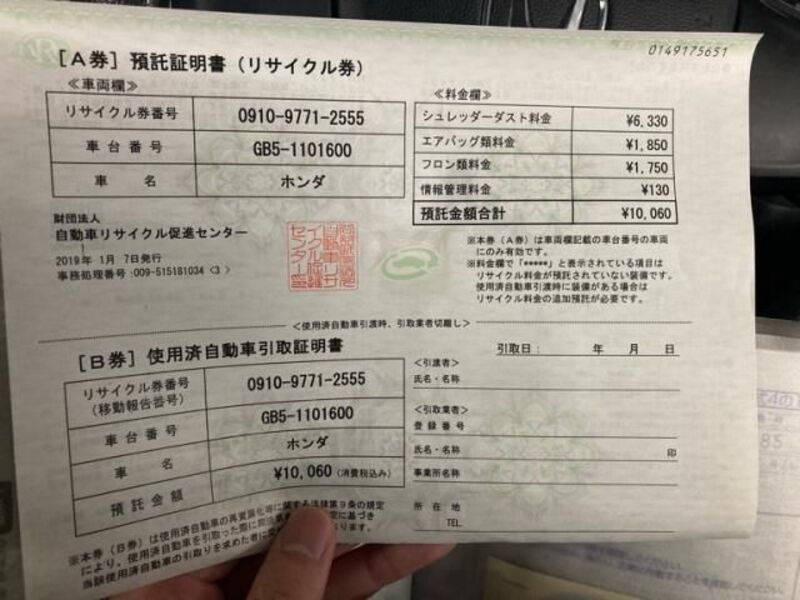 0149175651
［A券］預託証明書（リサイクル券）
≪車両欄≫
リサイクル券番号 0910-9771-2555
車台番号 GB5-1101600
車名 ホンダ
≪料金欄≫
シュレッダーダスト料金 ¥6,330
エアバッグ類料金 ¥1,850
フロン類料金 ¥1,750
情報管理料金 ¥130
預託金額合計 ¥10,060
財団法人
自動車リサイクル促進センター
2019年 1月 7日発行
事務処理番号:009-515181034 <3 >
※本券（A券）は車両欄記載の車台番号の車両
にのみ有効です。
※料金欄で「*****」と表示されている料金は
リサイクル料金が預託されていない装備です。
使用済自動車引渡時に装備がある場合は
リサイクル料金の追加預託が必要です。
＜使用済自動車引渡時、引取業者切離し＞
［B券］使用済自動車引取証明書
引取日： 年 月 日
リサイクル券番号
（移動報告番号） 0910-9771-2555
車台番号 GB5-1101600
車名 ホンダ
預託金額 ¥10,060 (消費税込み)
＜引渡者＞
氏名・名称
＜引取業者＞
登録番号
氏名・名称 印
事業所名称
所在地
TEL
※本券（B券）は使用済自動車の再資源化等に関する法律第9条の規定
により、使用済自動車を引取った際に
当該使用済自動車の引取りを求めた者に